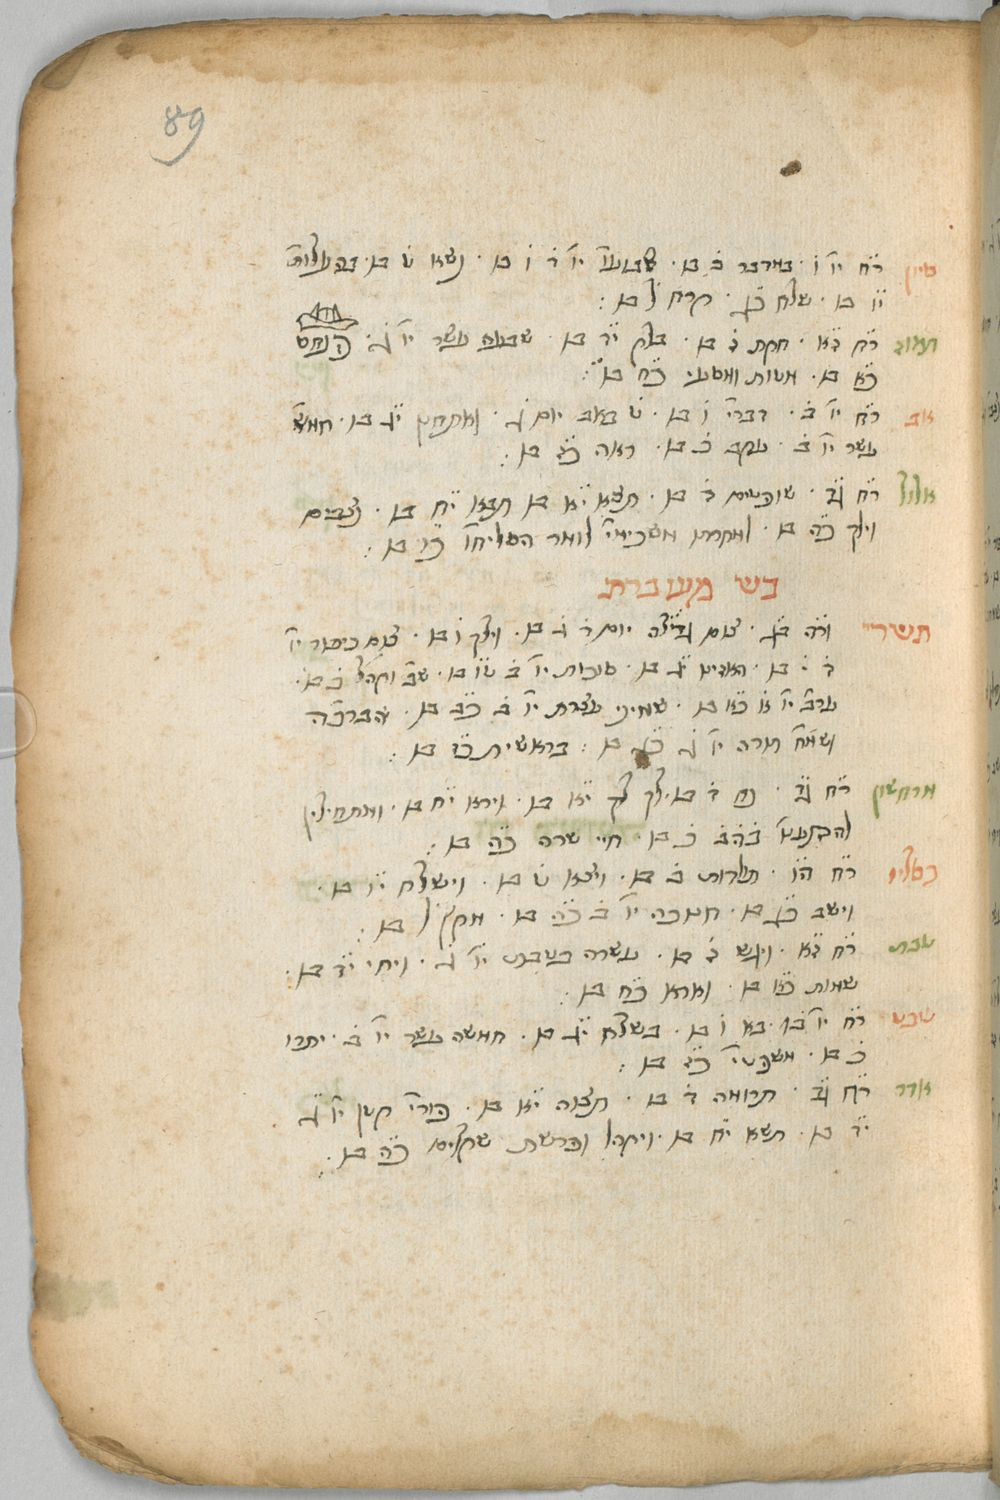 89
סיון ר״ח י״ו · במדבר ב בו · שבועו׳ י״ו ו בו · נשא ט בו · בהעלות׳
י״ו בו · שלח כ״ג · קרח ל בו :
תמוז ר״ח ד״א · חקת ז בו · בלק י״ד בו · שבעה עשר י״ו ג · פנחס
כ״א בו · מטות ומסעי כ״ח בו :
אב ר״ח י״ו ב · דברי׳ ו בו · ט באב יום ג · ואתחנן י״ג בו · חמש׳
עשר י״ו ב · עקב כ בו · ראה כ״ז בו :
אלול ר״ח ג״ד · שופטים ד בו · תצא י״א בו תבא י״ח בו · נצבים
וילך כ״ה בו · למחרת משכימי׳ לומר הסליחו׳ כ״ו בו :
בש מעוברת
תשרי ר״ה ב״ג · צום גדליה יום ד ג בו · וילך ו בו · צום כיפור י״ו
ד י בו · האזינו י״ג בו · סוכות י״ו ב ט״ו בו · שב׳ וקהל׳ כ בו ·
ערב׳ י״ו א כ״א בו · שמיני עצרת י״ו ב כ״ב בו · הברכה
ושמח׳ תורה י״ו ג כ״ג בו : בראשית כ״ז בו :
מרחשון ר״ח ג״ד · נח ד בו · לך לך י״א בו · וירא י״ח בו · ומתחילין
להתענות ב׳ה׳ב׳ כ בו · חיי שרה כ״ה בו :
כסליו ר״ח ה״ו · תולדות ב בו · ויצא ט בו · וישלח י״ו בו ·
וישב כ״ג בו · חנוכה י״ו ב כ״ה בו · מקץ ל בו :
טבת ר״ח ד״א · ויגש ז בו · עשרה בטבת י״ו ג · ויחי י״ד בו ·
שמות כ״א בו · וארא כ״ח בו :
שבט ר״ח י״ו ב · בא ו בו · בשלח י״ג בו · חמשה עשר י״ו ב · יתרו
כ בו · משפטי׳ כ״ז בו :
אדר ר״ח ג״ד · תרומה ד בו · תצוה י״א בו · פורי׳ קטן י״ו ג
י״ד בו · תשא י״ח בו · ויקהל ופרשת שקלים כ״ה בו :